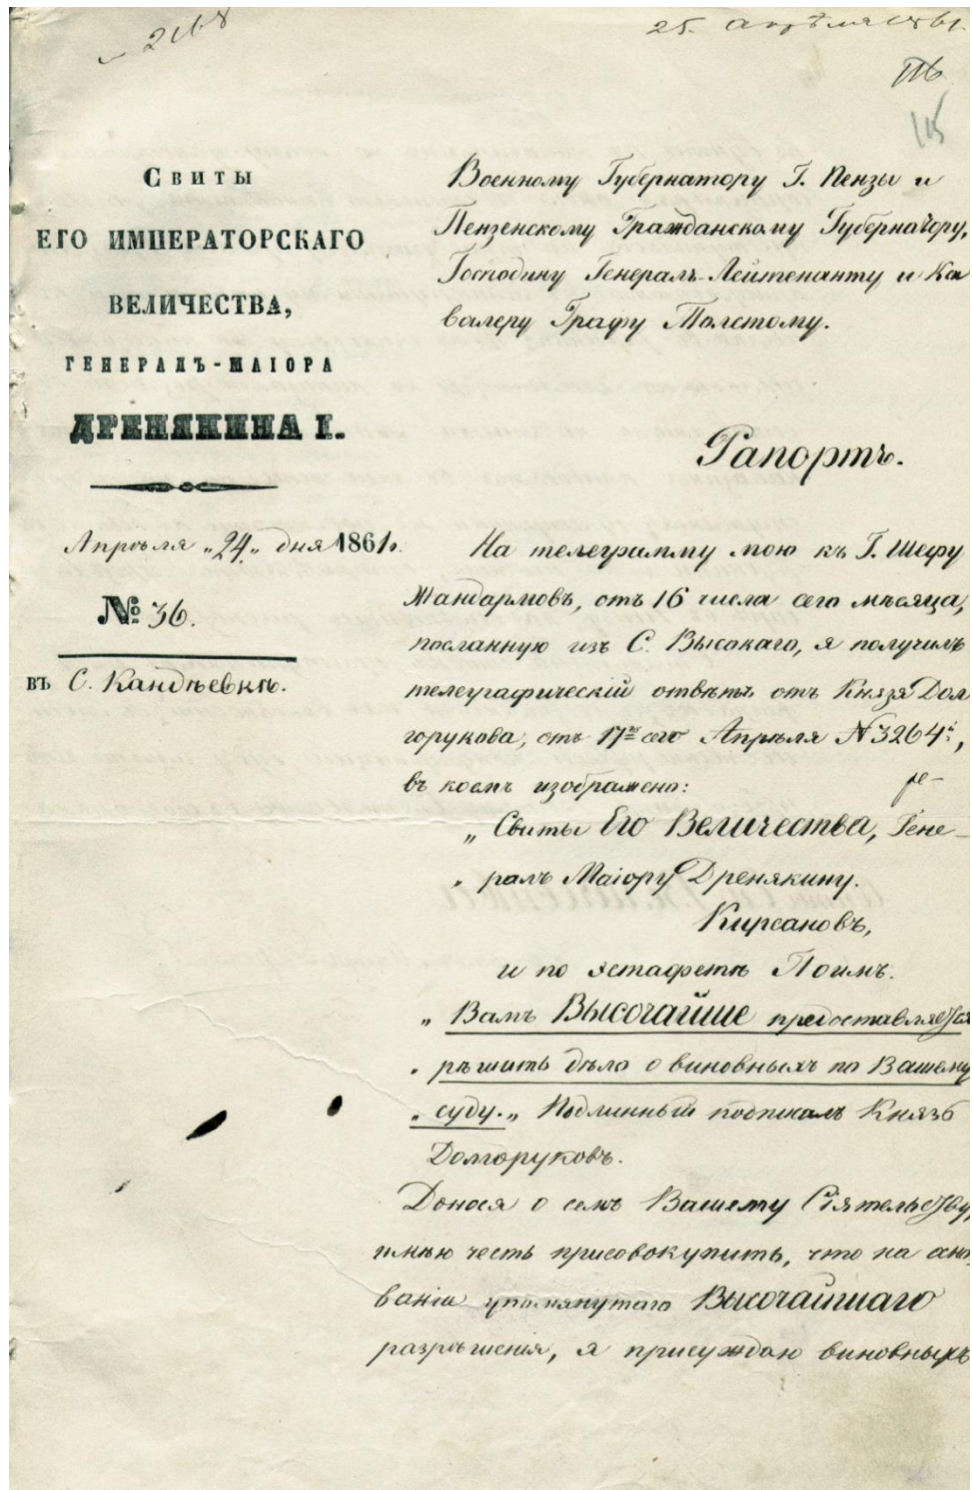 25. Апрѣля 1861.
115
Свиты
ЕГО ИМПЕРАТОРСКАГО
ВЕЛИЧЕСТВА,
ГЕНЕРАЛЪ-МАІОРА
ДРЕНЯКИНА I.
Апрѣля „24„ дня 1861 г.
№ 36.
въ С. Кандѣевкѣ.
Военному Губернатору Г. Пензы и
Пензенскому Гражданскому Губернатору,
Господину Генералъ-Лейтенанту и Ка
валеру Графу Толстому.
Рапортъ.
На телеграмму мою къ Г. Шефу
Жандармовъ, отъ 16 числа сего мѣсяца,
посланную изъ С. Высокаго, я получилъ
телеграфический отвѣтъ отъ Князя Дол
горукова, отъ 17го сего Апрѣля N 3264й,
въ коемъ изображено:
„ Свиты Его Величества, Гене-
„ ралъ Маіору Дренякину.
Кирсановъ,
и по эстафетѣ Поимъ.
„ Вамъ Высочайше предоставляется
„ рѣшить дѣло о виновныхъ по Вашему
„ суду.„ Подлинный подписалъ Князь
Долгоруковъ.
Донося о семъ Вашему Сіятельству,
имѣю честь присовокупить, что на осно
ваніи упомянутаго Высочайшаго
разрѣшенія, я присуждаю виновныхъ